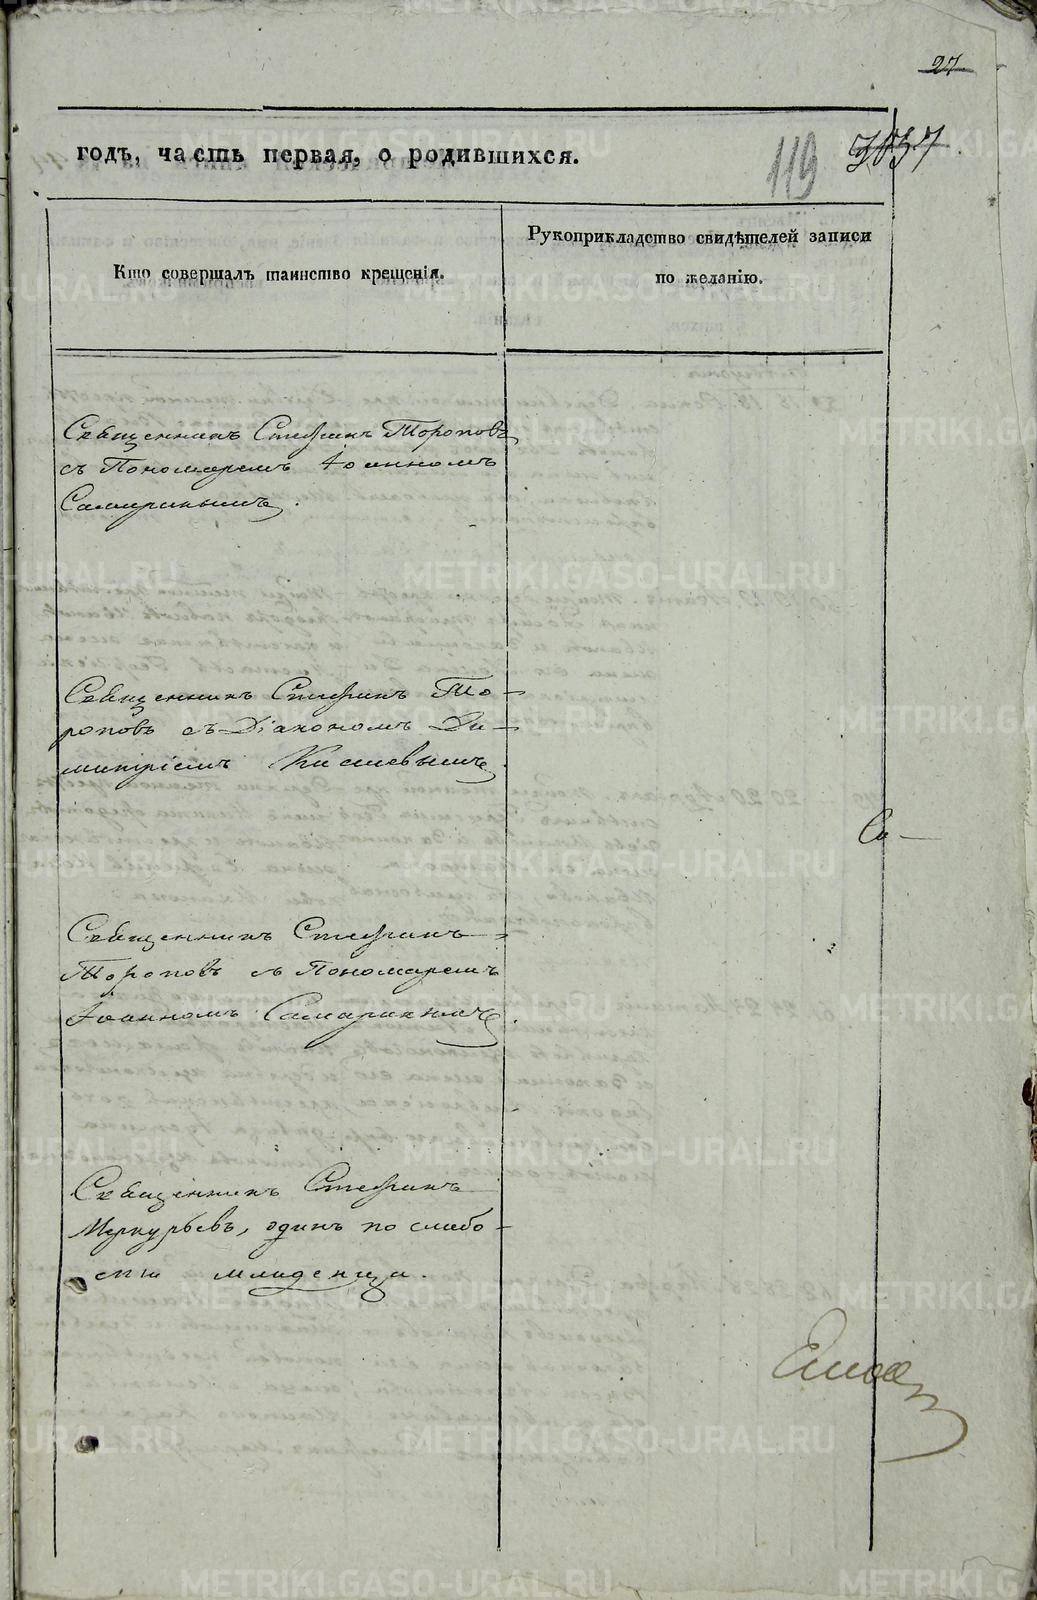 27
годъ, часть первая, о родившихся.
119
3037
Кто совершалъ таинство крещенія.
Рукоприкладство свидѣтелей записи
по желанію.
Священникъ Стефанъ Тороповъ
съ Пономаремъ Іоанномъ
Самаринымъ.
Священникъ Стефанъ То-
роповъ съ Діакономъ Ди-
митріемъ Киселевымъ.
Священникъ Стефанъ
Тороповъ съ Пономаремъ
Іоанномъ Самаринымъ.
Священникъ Стефанъ
Меркурьевъ, одинъ по слабо-
сти младенца.
METRIKI.GASO-URAL.RU